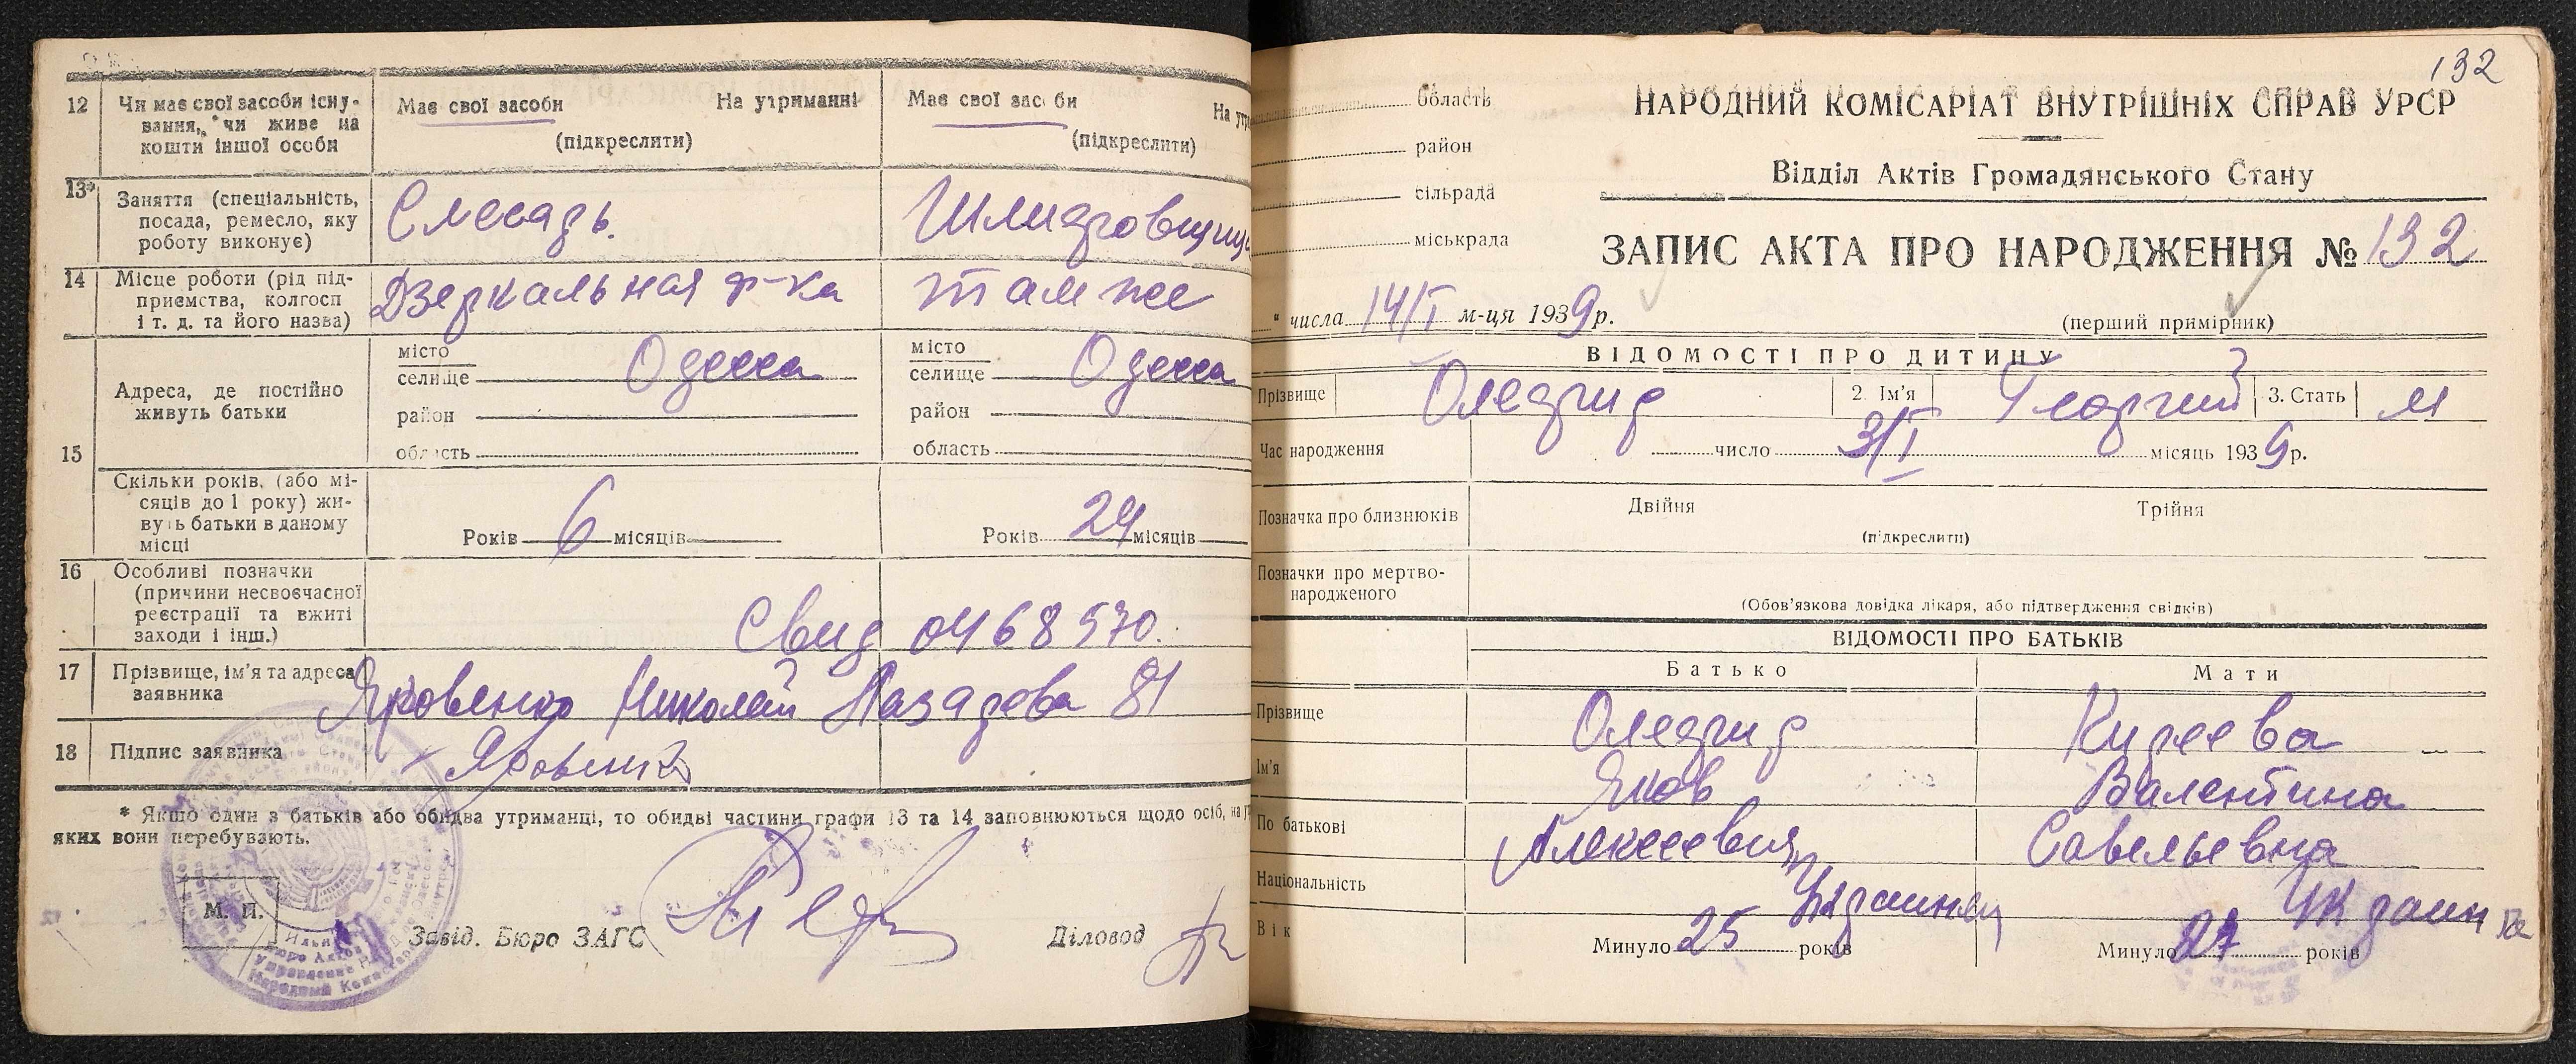 12 Чи має свої засоби існу-
вання, чи живе на
кошти іншої особи
Має свої засоби На утриманні
(підкреслити)
Має свої засоби На утр
(підкреслити)
13* Заняття (спеціальність,
посада, ремесло, яку
роботу виконує)
Слесарь.
Шлифовщица
14 Місце роботи (рід під-
приємства, колгосп
і т. д. та його назва)
Дзеркальная ф-ка
там же
15 Адреса, де постійно
живуть батьки
місто Одесса
селище
район
область
місто Одесса
селище
район
область
Скільки років, (або мі-
сяців до 1 року) жи-
вуть батьки в даному
місці
Років 6 місяців
Років 24 місяців
16 Особливі позначки
(причини несвоєчасної
реєстрації та вжиті
заходи і інш.)
Свид 0468570.
17 Прізвище, ім'я та адреса
заявника
Яровенко Николай Лазарева 81
18 Підпис заявника
Яровенко
* Якщо один з батьків або обидва утриманці, то обидві частини графи 13 та 14 заповнюються щодо осіб, на у
яких вони перебувають.
М. П.
Завід. Бюро ЗАГС
Діловод
132
область
район
сільрада
міськрада
НАРОДНИЙ КОМІСАРІАТ ВНУТРІШНІХ СПРАВ УРСР
Відділ Актів Громадянського Стану
ЗАПИС АКТА ПРО НАРОДЖЕННЯ № 132
" числа 14/I м-ця 1939 р.
(перший примірник)
ВІДОМОСТІ ПРО ДИТИНУ
Прізвище Олефир 2. Ім'я Георгий 3. Стать М
Час народження число 3/I місяць 1939 р.
Позначка про близнюків Двійня Трійня
(підкреслити)
Позначки про мертво-
народженого
(Обов'язкова довідка лікаря, або підтвердження свідків)
ВІДОМОСТІ ПРО БАТЬКІВ
Батько Мати
Прізвище Олефир Киреева
Ім'я Яков Валентина
По батькові Алексеевич Савельевна
Національність Украинец Украинка
Вік Минуло 25 років Минуло 24 років